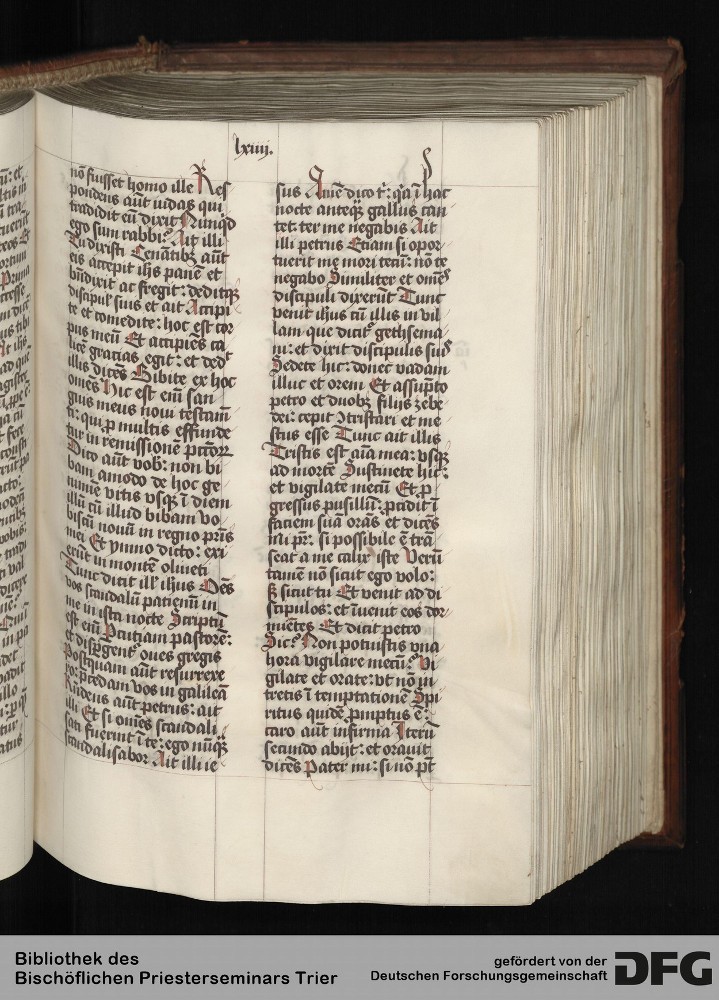 lxiiij.
nō fuisset homo ille Res
pondens aūt iudas qui
tradidit eū dixit Nunqͥd
ego sum rabbi? Ait illi
Tu dixisti Cenātibꝫ aūt
eis accepit ihs panē et
bn̄dixit ac fregit: deditqꝫ
discipuľ suis et ait Accipi
te et comedite: hoc est cor
pus meū Et accipiēs ca
licē gracias egit: et dedͭ
illis dicēs Bibite ex hoc
om̄es Hic est eīm san
guis meus noui testam̄
ti: qui ꝓ multis effunde
tur in remissionē pcc̄oꝝ
Dico aūt vob̄: non bi
bam amodo de hoc ge
nimīe vitis vsqꝫ ī diem
illū cū illud bibam vo
biscū nouū in regno pr̄is
mei Et ymno dicto: exi
erūt in montē oliueti
Tunc dicit illꝭ ihus Om̄s
vos scandalū patiemī in
me in ista nocte Scriptū
est eīm Percutiam pastorē:
et disꝑgent᷑ oues gregis
Postquam aūt resurrexe
ro: p̄cedam vos in galileā
Rn̄dens aūt petrus: ait
illi Et si om̄es scandali
sati fuerint ī te: ego nūqͣꝫ
scandalisabor Ait illi ie
sus Amē dico t̄: qͥa ī hac
nocte anteqͣꝫ gallus can
tet: ter me negabis Ait
illi petrus Etiam si opor
tuerit me mori tecū: nō te
negabo Similiter et om̄es
discipuli dixerūt Tunc
venit ihus cū illis in vil
lam que dicit᷑ gethsema
ni: et dixit discipulis suis
Sedete hic: donec vadam
illuc et orem Et assūpto
petro et duobꝫ filijs zebe
dei: cepit ↄtristari et me
stus esse Tunc ait illis
Tristis est aīa mea: vsqꝫ
ad mortē Sustinete hic:
et vigilate mecū Et ꝓ
gressus pusillū: ꝓcidit ī
faciem suā orās et dicēs
mi pr̄: si possibile ē trā
seat a me calix iste Verū
tamē nō sicut ego volo:
sꝫ sicut tu Et venit ad di
scipulos: et īuenit eos dor
miētes Et dicit petro
Sic? Non potuistis vna
hora vigilare mecū? Vi
gilate et orate: vt nō ī
tretis ī temptationē Spi
ritus quidē ꝓmptus ē:
caro aūt infirma Iterū
secundo abijt: et orauit
dicēs Pater mi: si nō pt̄
Bibliothek des
Bischöflichen Priesterseminars Trier
gefördert von der
Deutschen Forschungsgemeinschaft
DFG